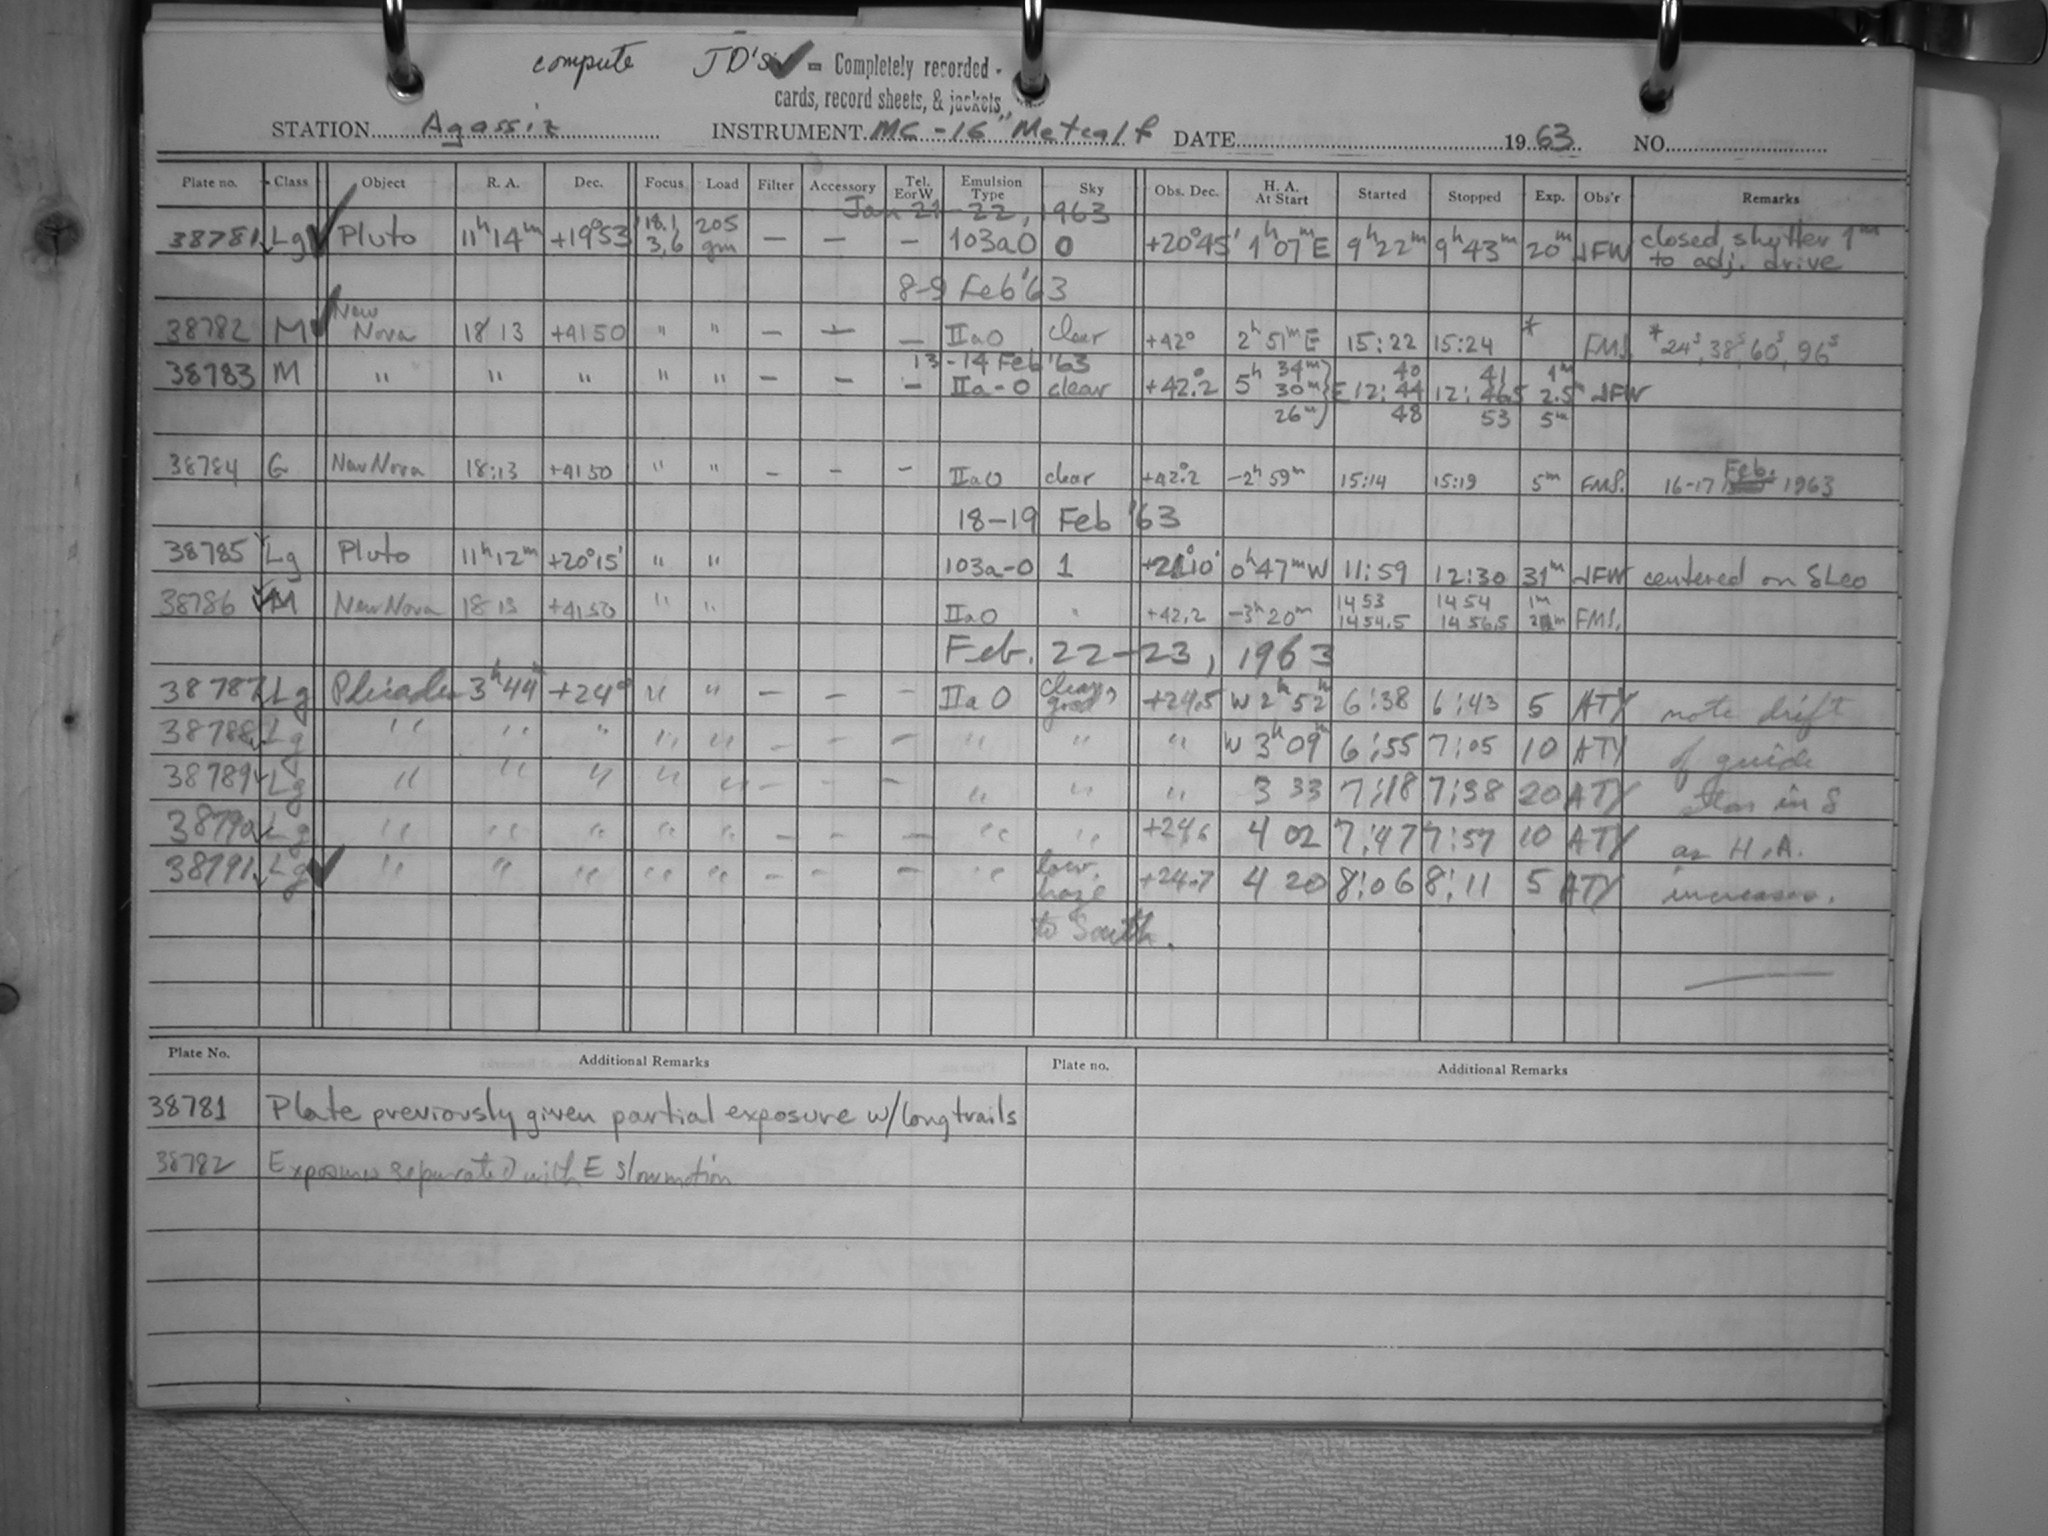 compute JD's ✓ = Completely recorded -
cards, record sheets, & jackets,
STATION Agassiz INSTRUMENT MC-16 "Metcalf DATE 1963 NO.
Plate no. Class Object R. A. Dec. Focus Load Filter Accessory Tel. E or W Emulsion Type Sky Obs. Dec. H. A. At Start Started Stopped Exp. Obs'r Remarks
Jan 21-22, 1963
38781 Lg Pluto 11h 14m +19°53 18.1 3,6 205 gm — — — 103aO 0 +20°45' 1h 07m E 9h 22m 9h 43m 20m JFW closed shutter 1m to adj. drive
8-9 Feb '63
38782 M New Nova 18 13 +41 50 " " — — — IIaO clear +42° 2h 51m E 15:22 15:24 * FMS * 24s, 38s, 60s, 96s
13-14 Feb '63
38783 M " " " " " — — — IIa-O clear +42.°2 5h 34m 30m 26m E 12: 40 44 48 12: 41 46.5 53 1m 2.5m 5m JFW
38784 G New Nova 18:13 +41 50 " " — — — IIaO clear +42.°2 -2h 59m 15:14 15:19 5m FMS. 16-17 Feb. 1963
18-19 Feb '63
38785 Lg Pluto 11h 12m +20°15' " " 103a-O 1 +21°10' 0h 47m W 11:59 12:30 31m JFW centered on δ Leo
38786 M New Nova 18 13 +41 50 " " IIaO " +42.2 -3h 20m 14 53 14 54.5 14 54 14 56.5 1m 2m FMS.
Feb. 22-23, 1963
38787 Lg Pleiades 3h 44m +24° " " — — — IIa O clear, good +24.5 W 2h 52m 6:38 6:43 5 ATY note drift
38788 Lg " " " " " — — — " " " W 3h 09m 6:55 7:05 10 ATY of guide
38789 Lg " " " " " — — — " " " 3 33 7:18 7:38 20 ATY star in δ
38790 Lg " " " " " — — — " " +24.6 4 02 7:47 7:57 10 ATY as H.A.
38791 Lg " " " " " — — — " low haze to South. +24.7 4 20 8:06 8:11 5 ATY increases.
Plate No. Additional Remarks Plate no. Additional Remarks
38781 Plate previously given partial exposure w/long trails
38782 Exposures separated with E slow motion